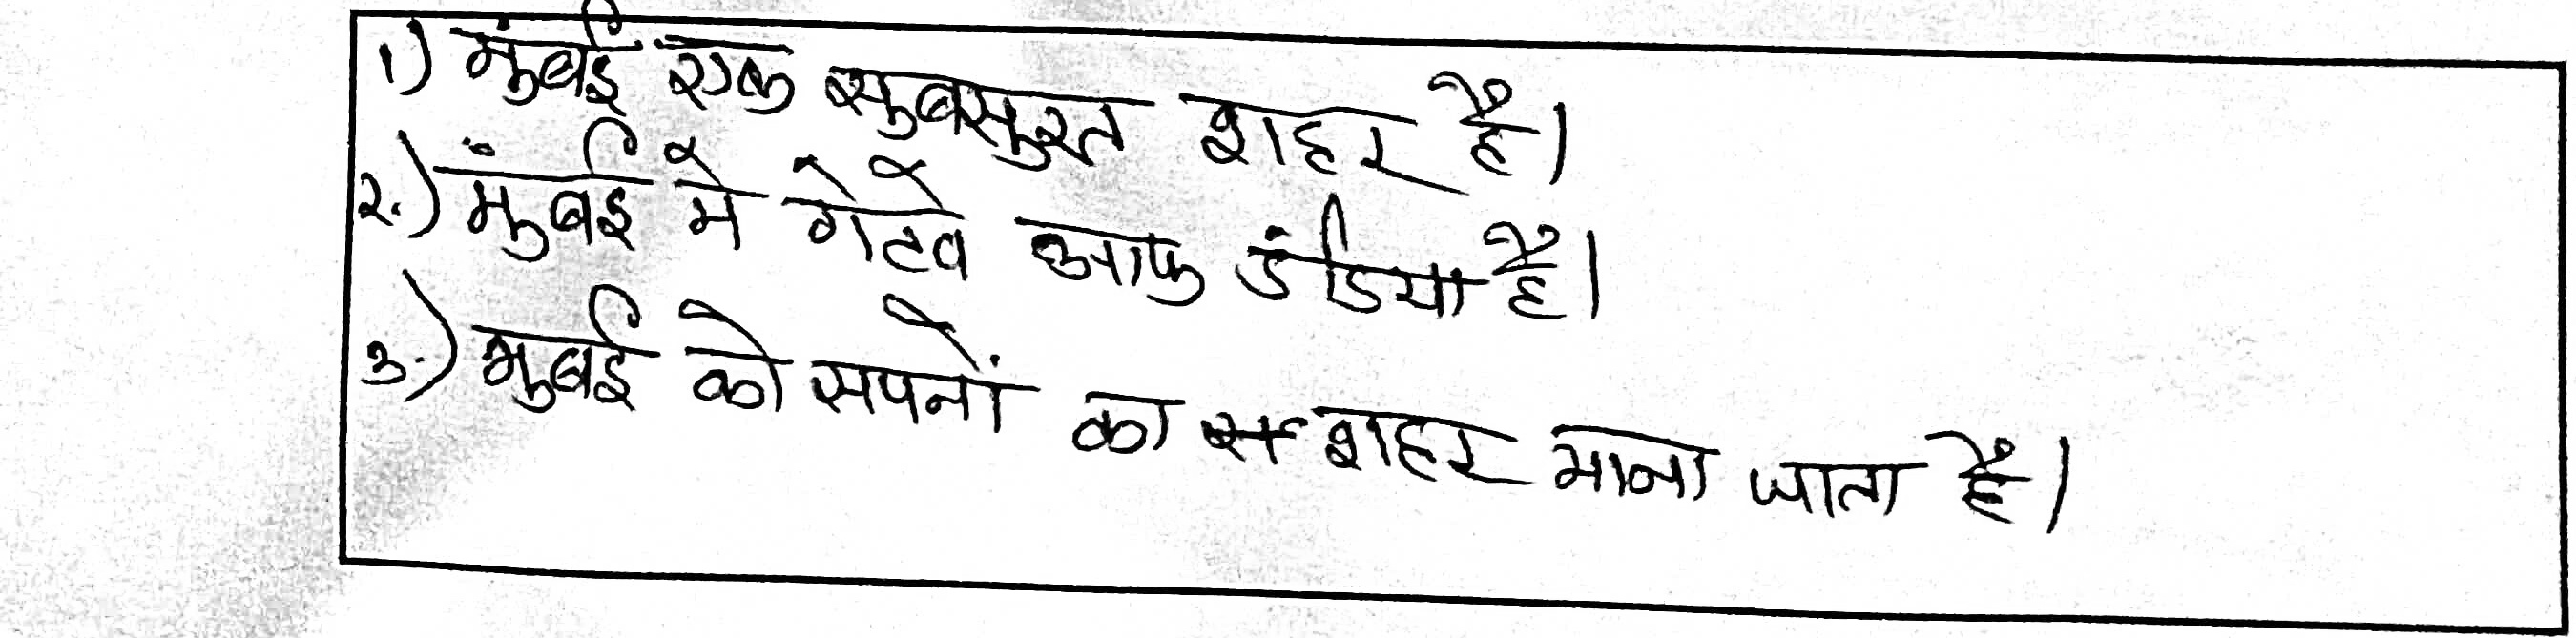 1) मुंबई एक खुबसुरत शहर है।
२.) मुंबई मे गेटवे आफ इंडिया है।
३.) मुबई को सपनों का शहर माना जाता है।